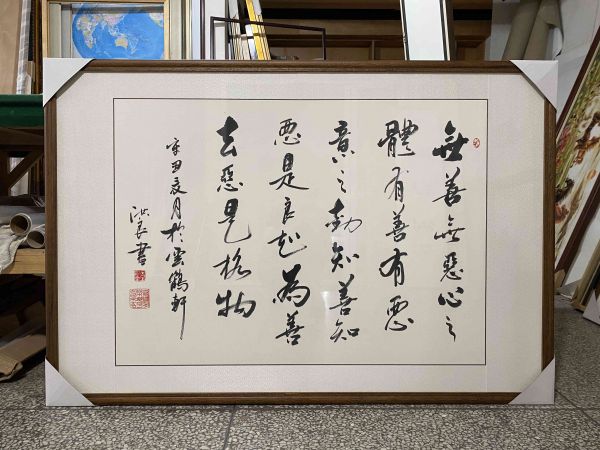 無善無惡心之
體有善有悪
意之動知善知
悪是良知為善
去惡是格物
辛丑夏月於雲鶴軒
書